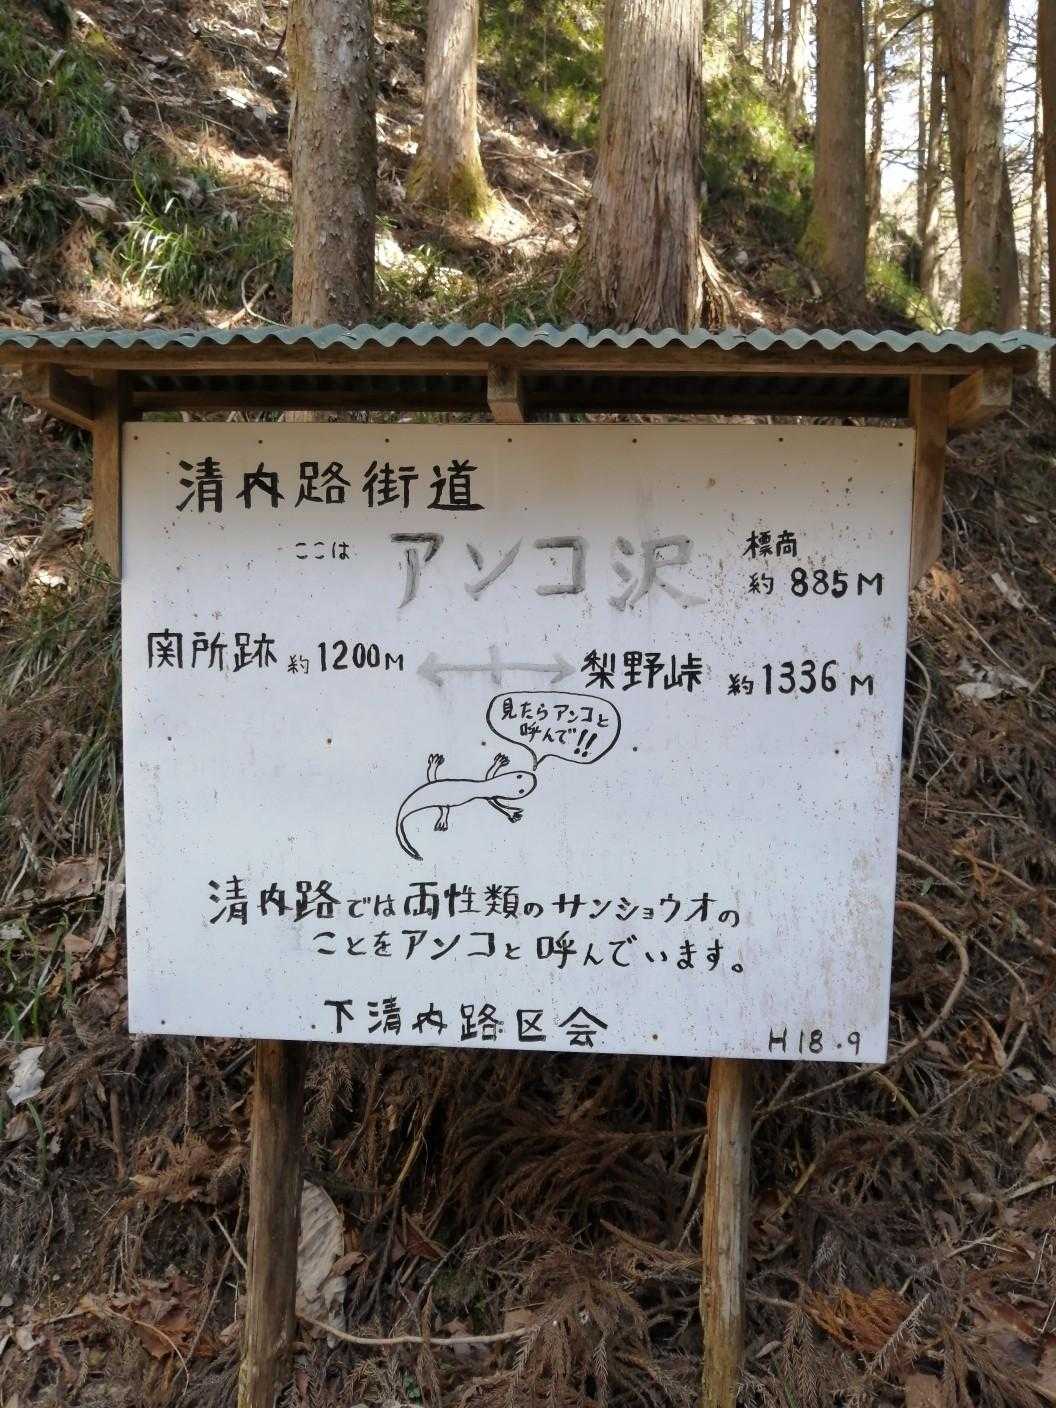 清内路街道
ここは アンコ沢 標高
約 885M
関所跡 約 1200M ↔ 梨野峠 約 1336M
見たらアンコと
呼んで!!
清内路では両性類のサンショウオの
ことをアンコと呼んでいます。
下清内路区会
H18.9